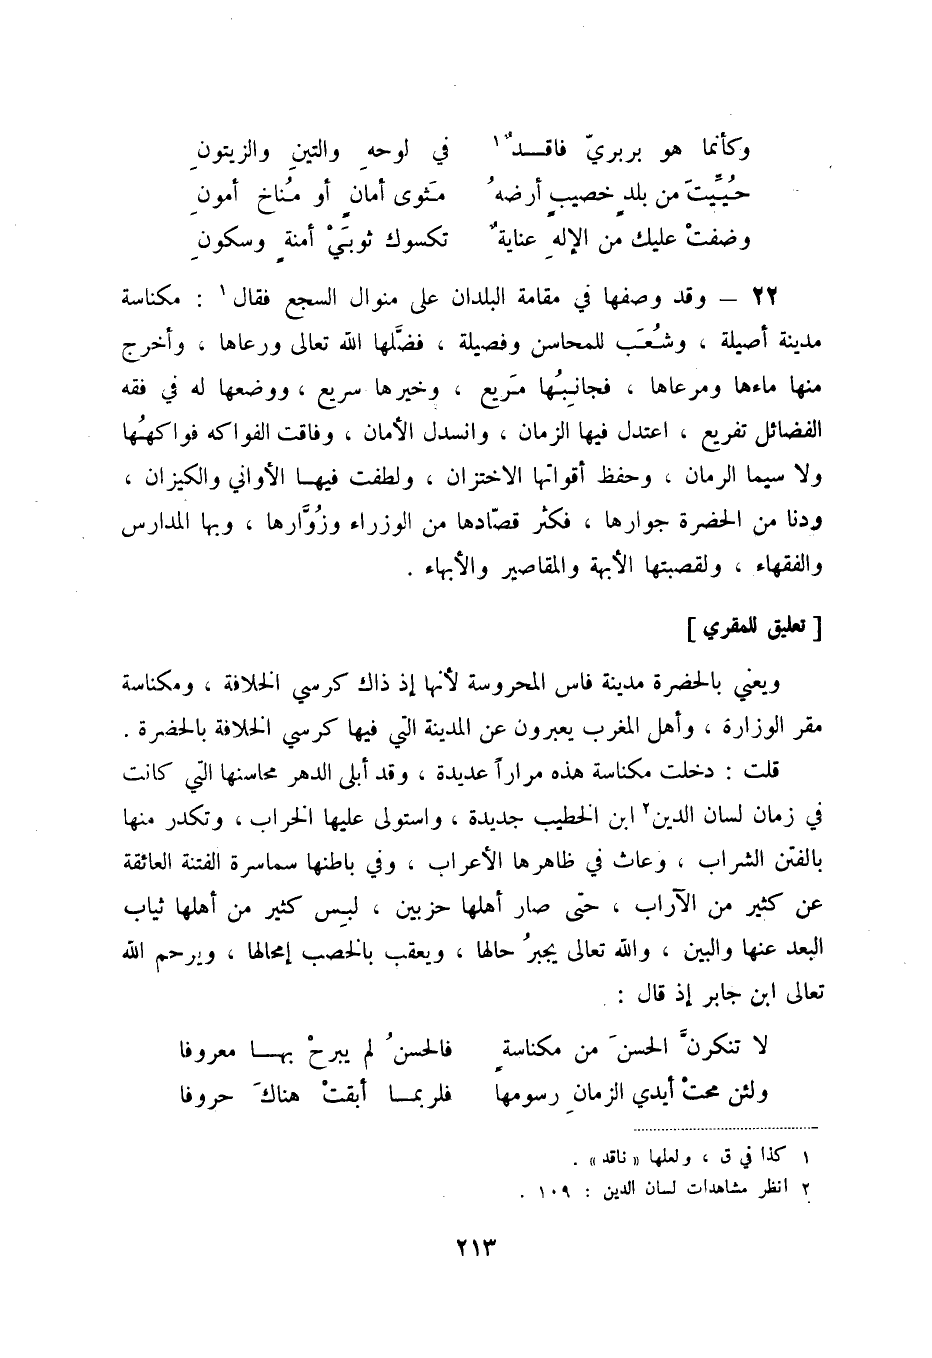 وكأنما هو بربريّ فاقـــدٌ١ في لوحهِ والتينِ والزيتونِ
حُيِّيتَ من بلدٍ خصيبٍ أرضهُ مَثوى أمانٍ أو مُناخِ أمونِ
وضفتْ عليك من الإلهِ عنايةٌ تكسوك ثوبَيْ أمنةٍ وسكونِ
٢٢ – وقد وصفها في مقامة البلدان على منوال السجع فقال١ : مكناسة
مدينة أصيلة ، وشُعَب للمحاسن وفصيلة ، فضَّلها الله تعالى ورعاها ، وأخرج
منها ماءها ومرعاها ، فجانِبُها مَريع ، وخيرها سريع ، ووضعها له في فقه
الفضائل تفريع ، اعتدل فيها الزمان ، وانسدل الأمان ، وفاقت الفواكه فواكهُها
ولا سيما الرمان ، وحفظ أقواتها الاختزان ، ولطفت فيهـا الأواني والكيزان ،
ودنا من الحضرة جوارها ، فكثر قصّادها من الوزراء وزُوَّارها ، وبها المدارس
والفقهاء ، ولقصبتها الأبهة والمقاصير والأبهاء .
[ تعليق للمقري ]
ويعني بالحضرة مدينة فاس المحروسة لأنها إذ ذاك كرسي الخلافة ، ومكناسة
مقر الوزارة ، وأهل المغرب يعبرون عن المدينة التي فيها كرسي الخلافة بالحضرة .
قلت : دخلت مكناسة هذه مراراً عديدة ، وقد أبلى الدهر محاسنها التي كانت
في زمان لسان الدين٢ ابن الخطيب جديدة ، واستولى عليها الخراب ، وتكدر منها
بالفتن الشراب ، وعاث في ظاهرها الأعراب ، وفي باطنها سماسرة الفتنة العائقة
عن كثير من الآراب ، حتّى صار أهلها حزبين ، لبِس كثير من أهلها ثياب
البعد عنها والبين ، والله تعالى يجبرُ حالها ، ويعقب بالخصب إمحالها ، ويرحم الله
تعالى ابن جابر إذ قال :
لا تنكرنَّ الحسنَ من مكناسةٍ فالحسنُ لم يبرحْ بهـــا معروفا
ولئن محتْ أيدي الزمانِ رسومها فلربمـــا أبقتْ هناكَ حروفا
١ كذا في ق ، ولعلها « ناقد » .
٢ انظر مشاهدات لسان الدين : ١٠٩ .
٢١٣